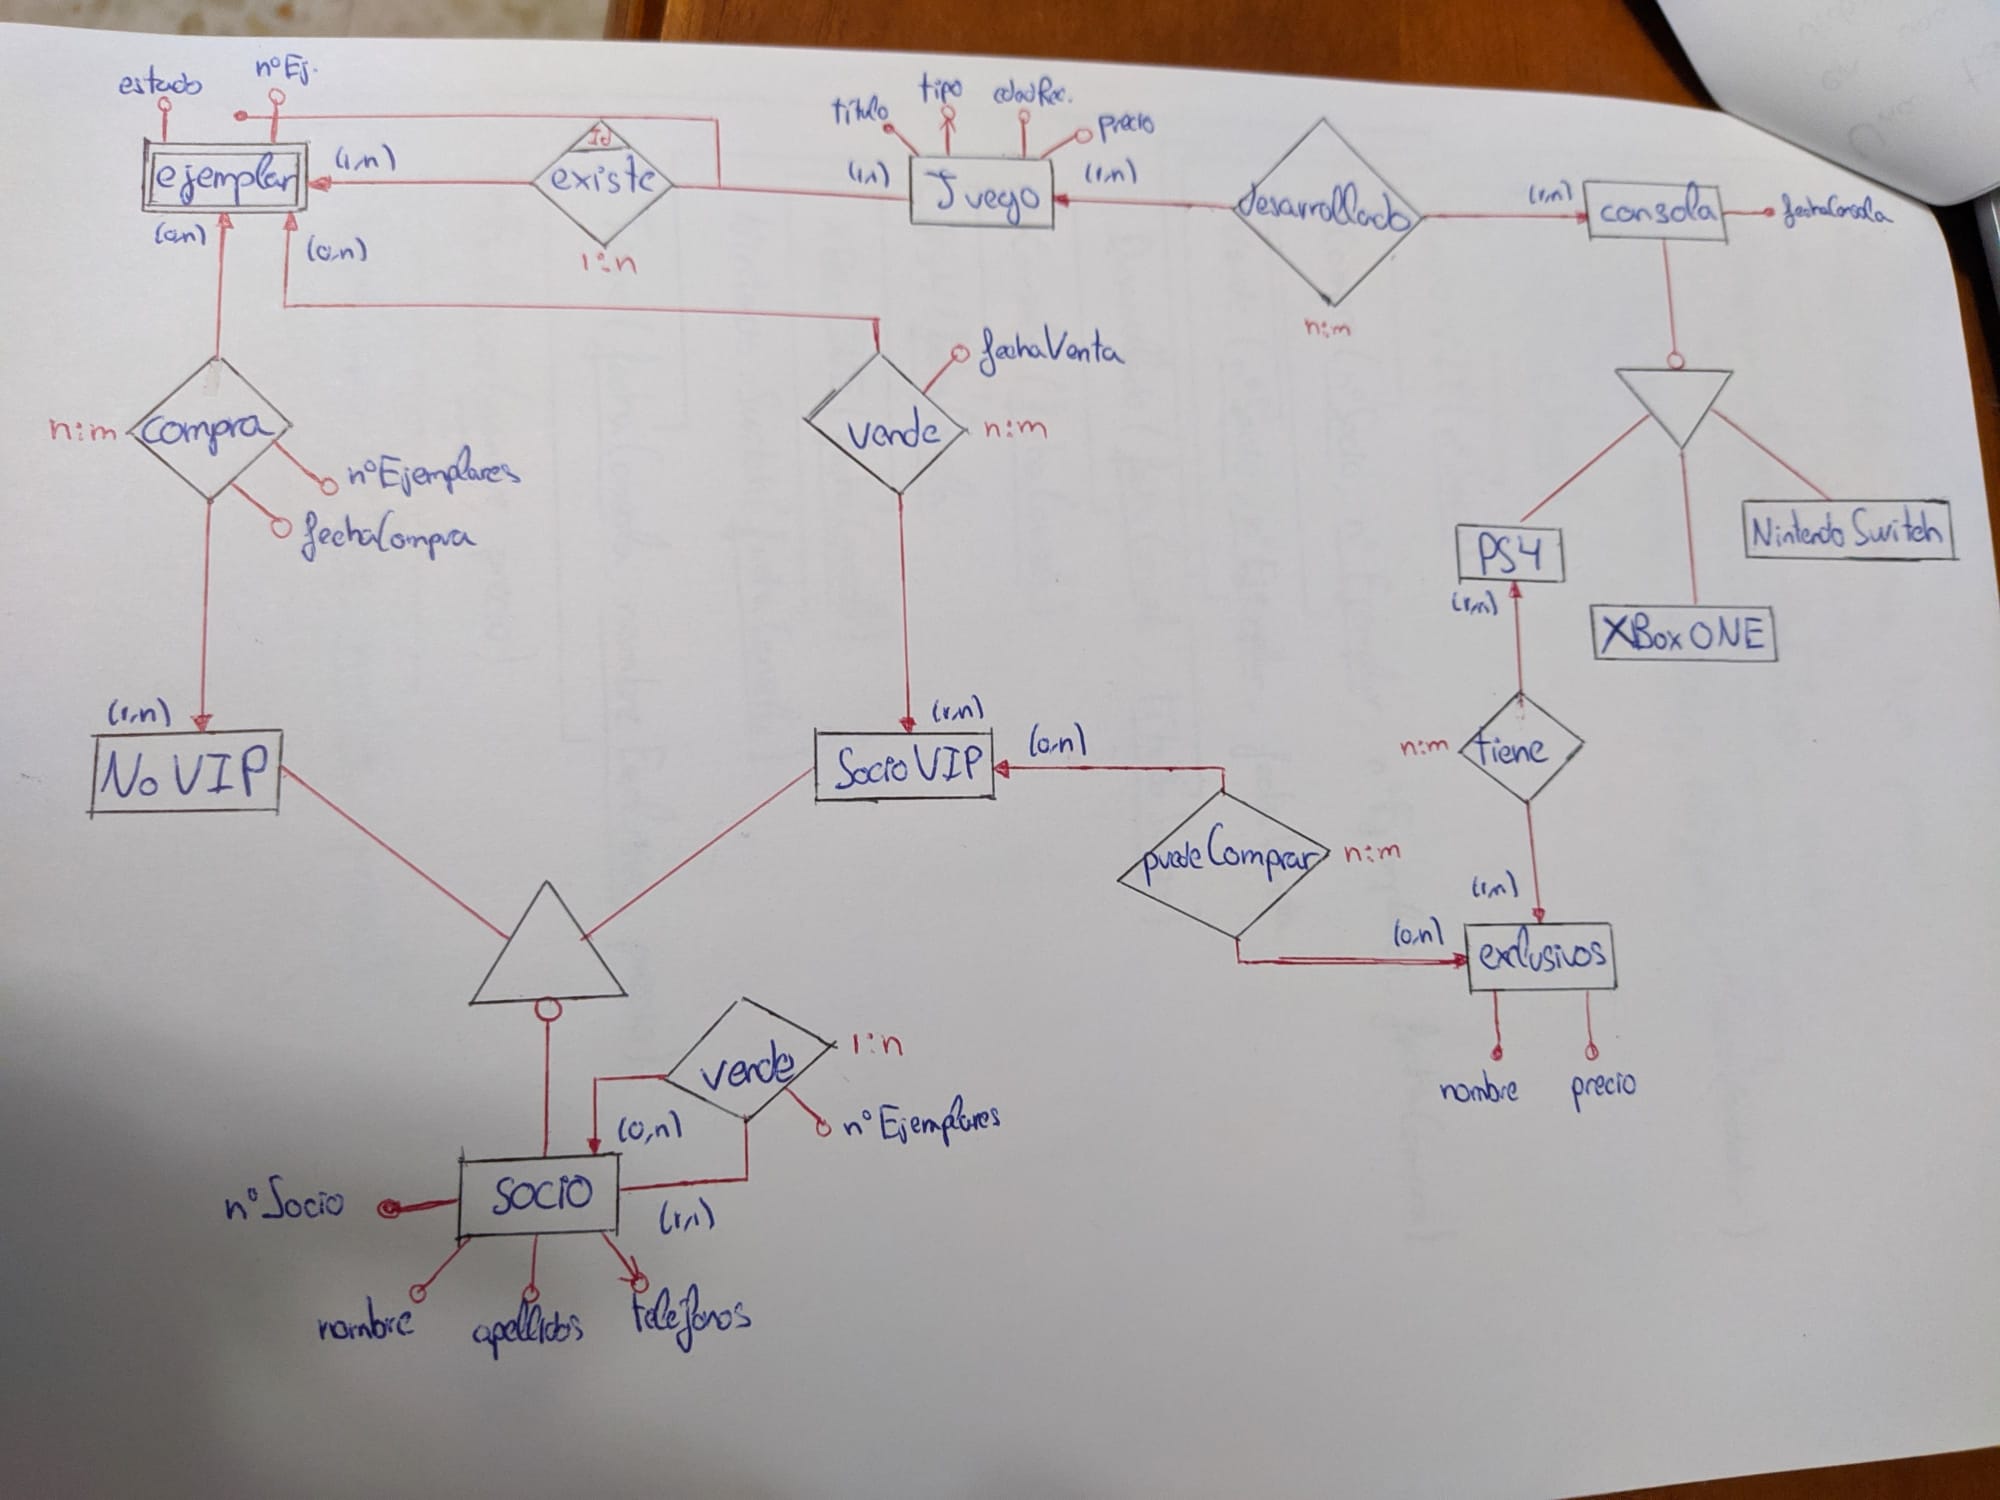 estado
nºEj.
ejemplar
(1,n)
(0,n)
(0,n)
Id
existe
1:n
título
tipo
edadRec.
precio
(1,1)
Juego
(1,n)
desarrollado
n:m
(1,n)
consola
fechaConsola
n:m
compra
nºEjemplares
fechaCompra
fechaVenta
vende
n:m
PS4
(1,n)
XBox ONE
Nintendo Switch
(1,n)
No VIP
(1,n)
Socio VIP
(0,n)
n:m
tiene
puede Comprar
n:m
(1,n)
(0,n)
exclusivos
nombre
precio
vende
1:n
nºEjemplares
(0,n)
(1,1)
nºSocio
SOCIO
nombre
apellidos
teléfonos